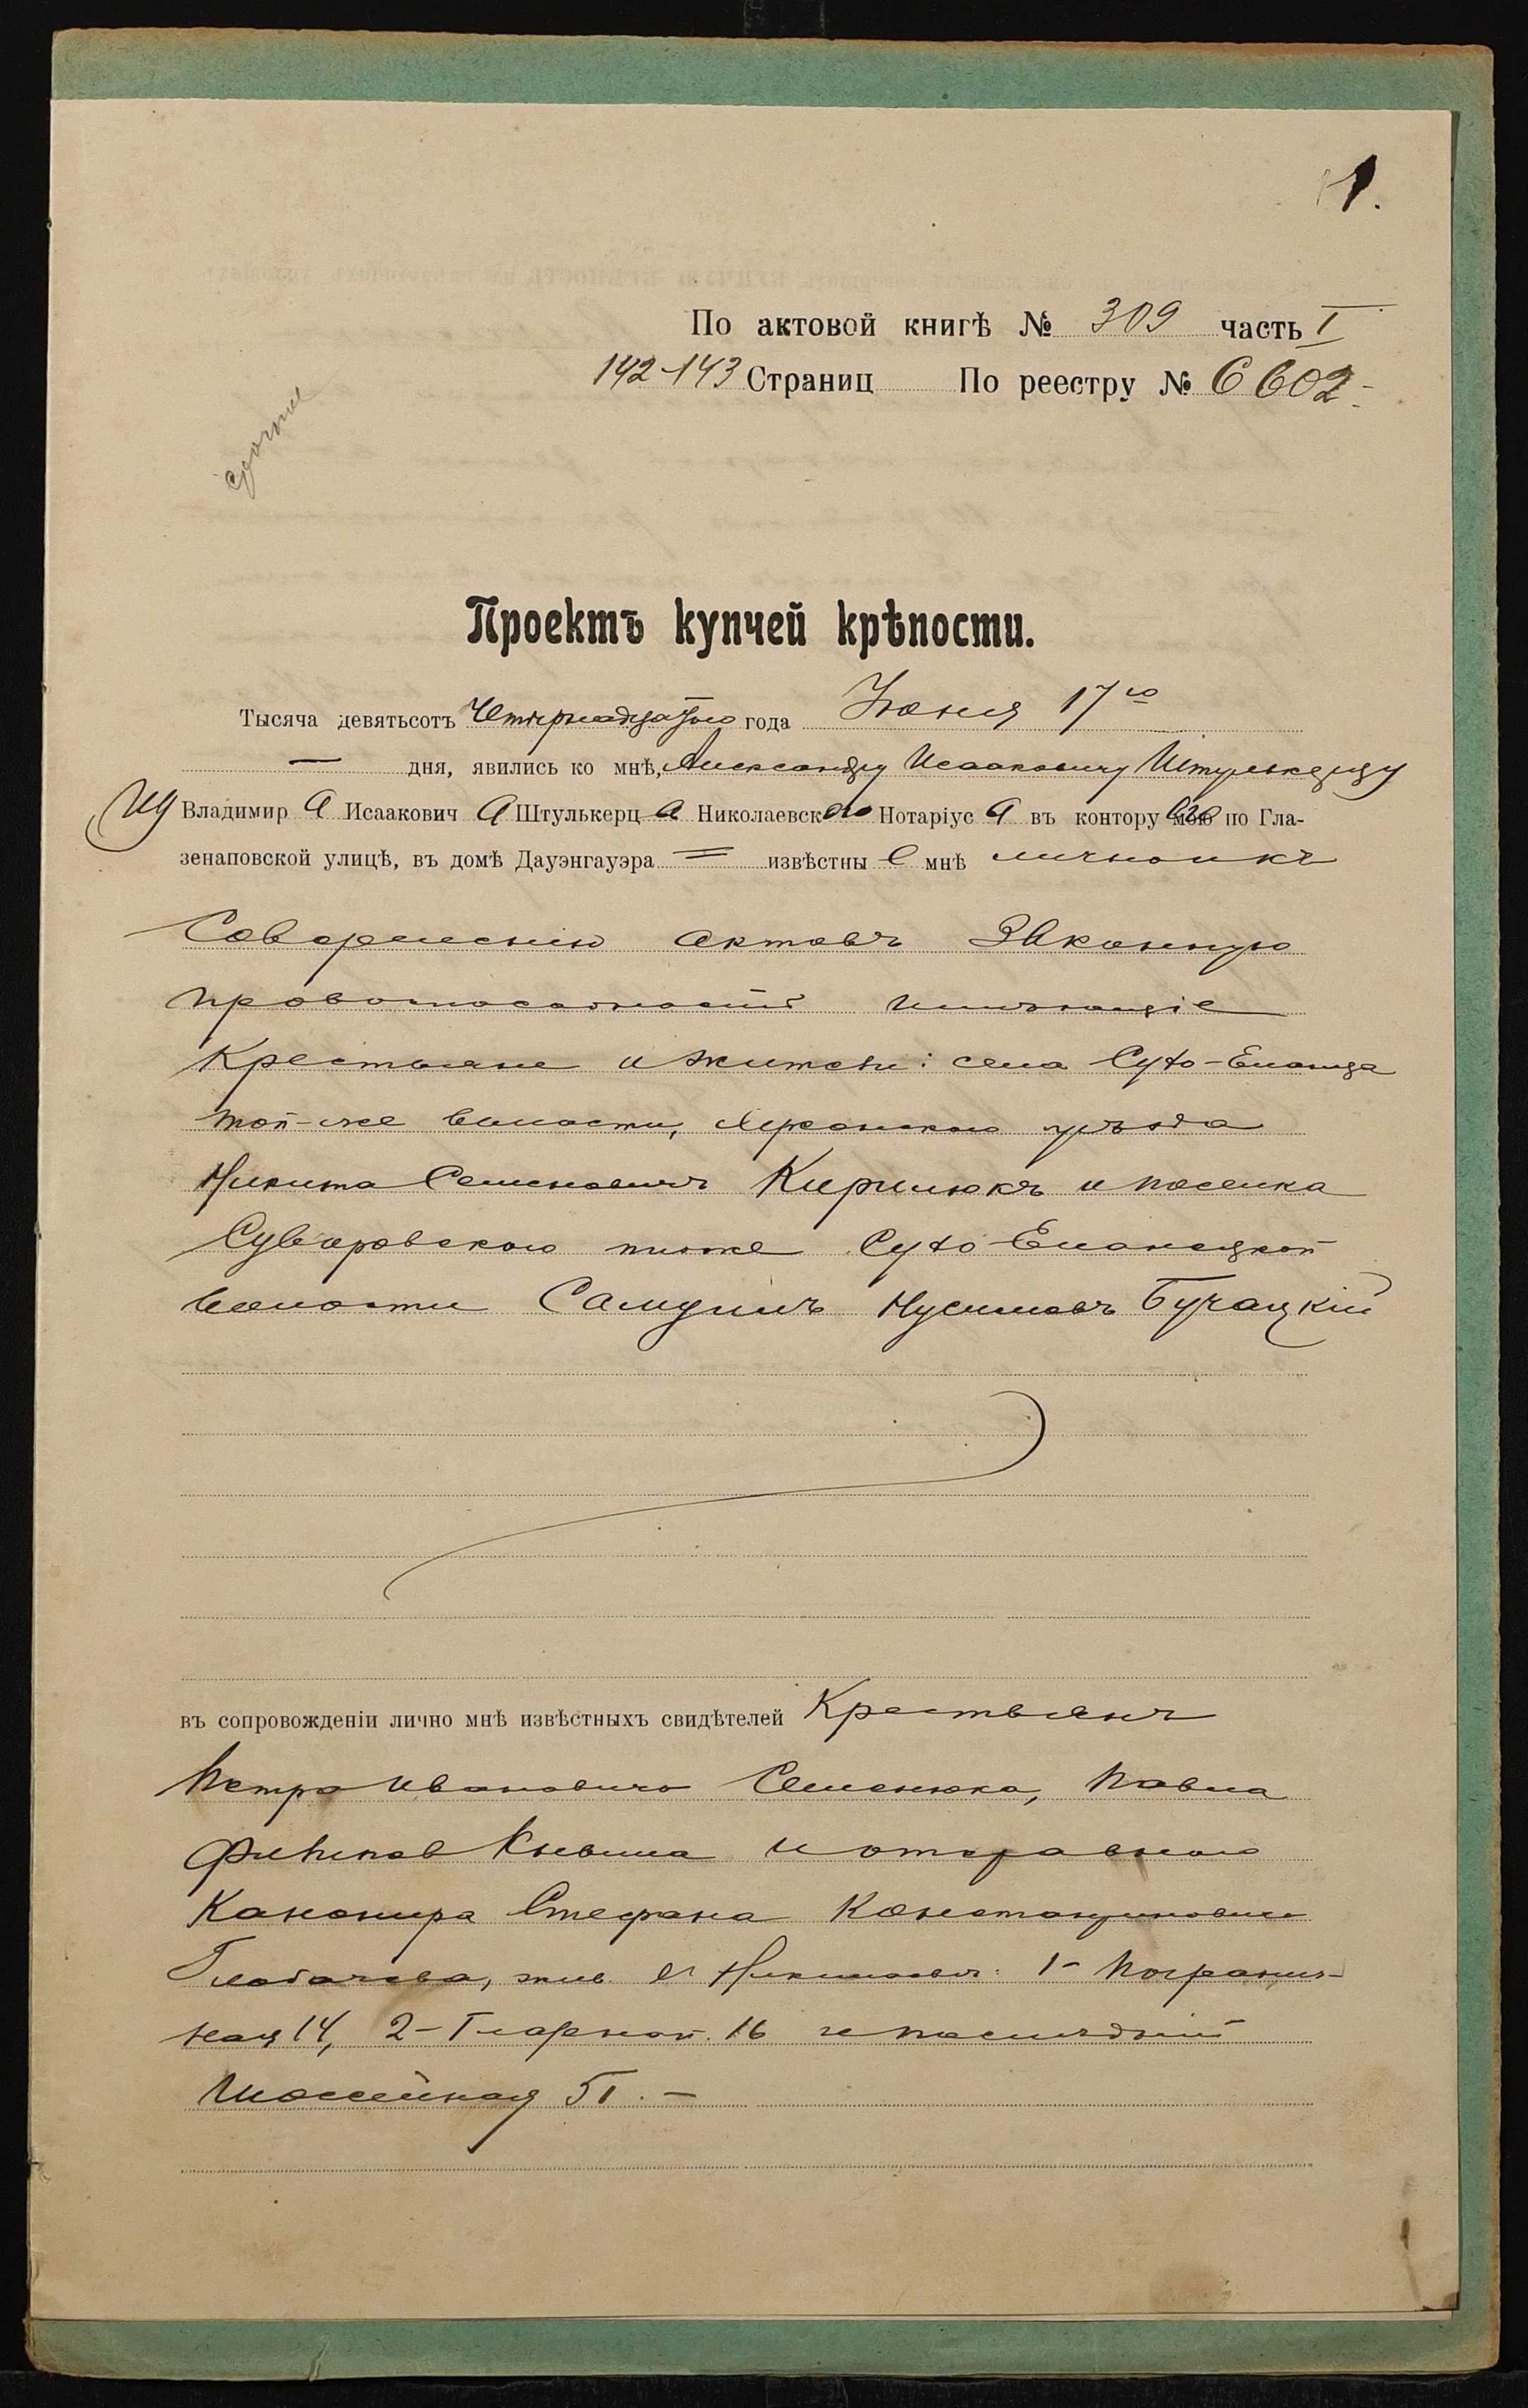 1.
По актовой книгѣ № 309 часть I
142-143 Страниц По реестру № 6602
Проектъ купчей крѣпости.
Тысяча девятьсотъ Четырнадцатого года Іюня 17го
— дня, явились ко мнѣ, Александру Исааковичу Штулькерцу
Владимир а Исаакович а Штулькерц а Николаевск ого Нотаріус а въ контору его по Гла-
зенаповской улицѣ, въ домѣ Дауэнгауэра = извѣстны е мнѣ лично и къ
Совершенію актовъ законную
правоспособность имѣющіе
Крестьяне и жители: села Сухо-Еланца
той-же волости, Херсонского уѣзда
Никита Семеновичъ Кирилюкъ и поселка
Суворовского тоже Сухо-Еланецкой
волости Самуилъ Нусимовъ Бучацкій
въ сопровожденіи лично мнѣ извѣстныхъ свидѣтелей Крестьянъ
Петра Ивановича Семенюка, Павла
Филипов и отставного
Канонира Стефана Константиновича
Глобачева, жив. въ Николаевѣ: 1- Погранич-
ная 14, 2- 16 и послѣдній
Шоссейная 51. -